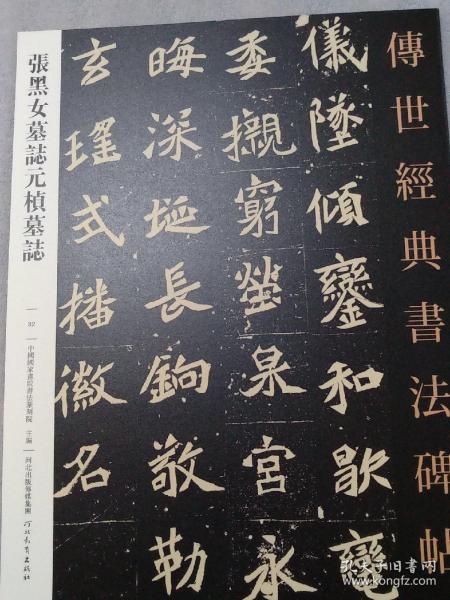 傳世經典書法碑帖
儀墜傾鑾和歇
委櫬窮塋泉宮永
晦深埏長銄敬勒
玄瑤式播徽名
張黑女墓誌元楨墓誌
32
中國國家畫院書法篆刻院 主編
河北出版傳媒集團
河北教育出版社
孔夫子旧书网